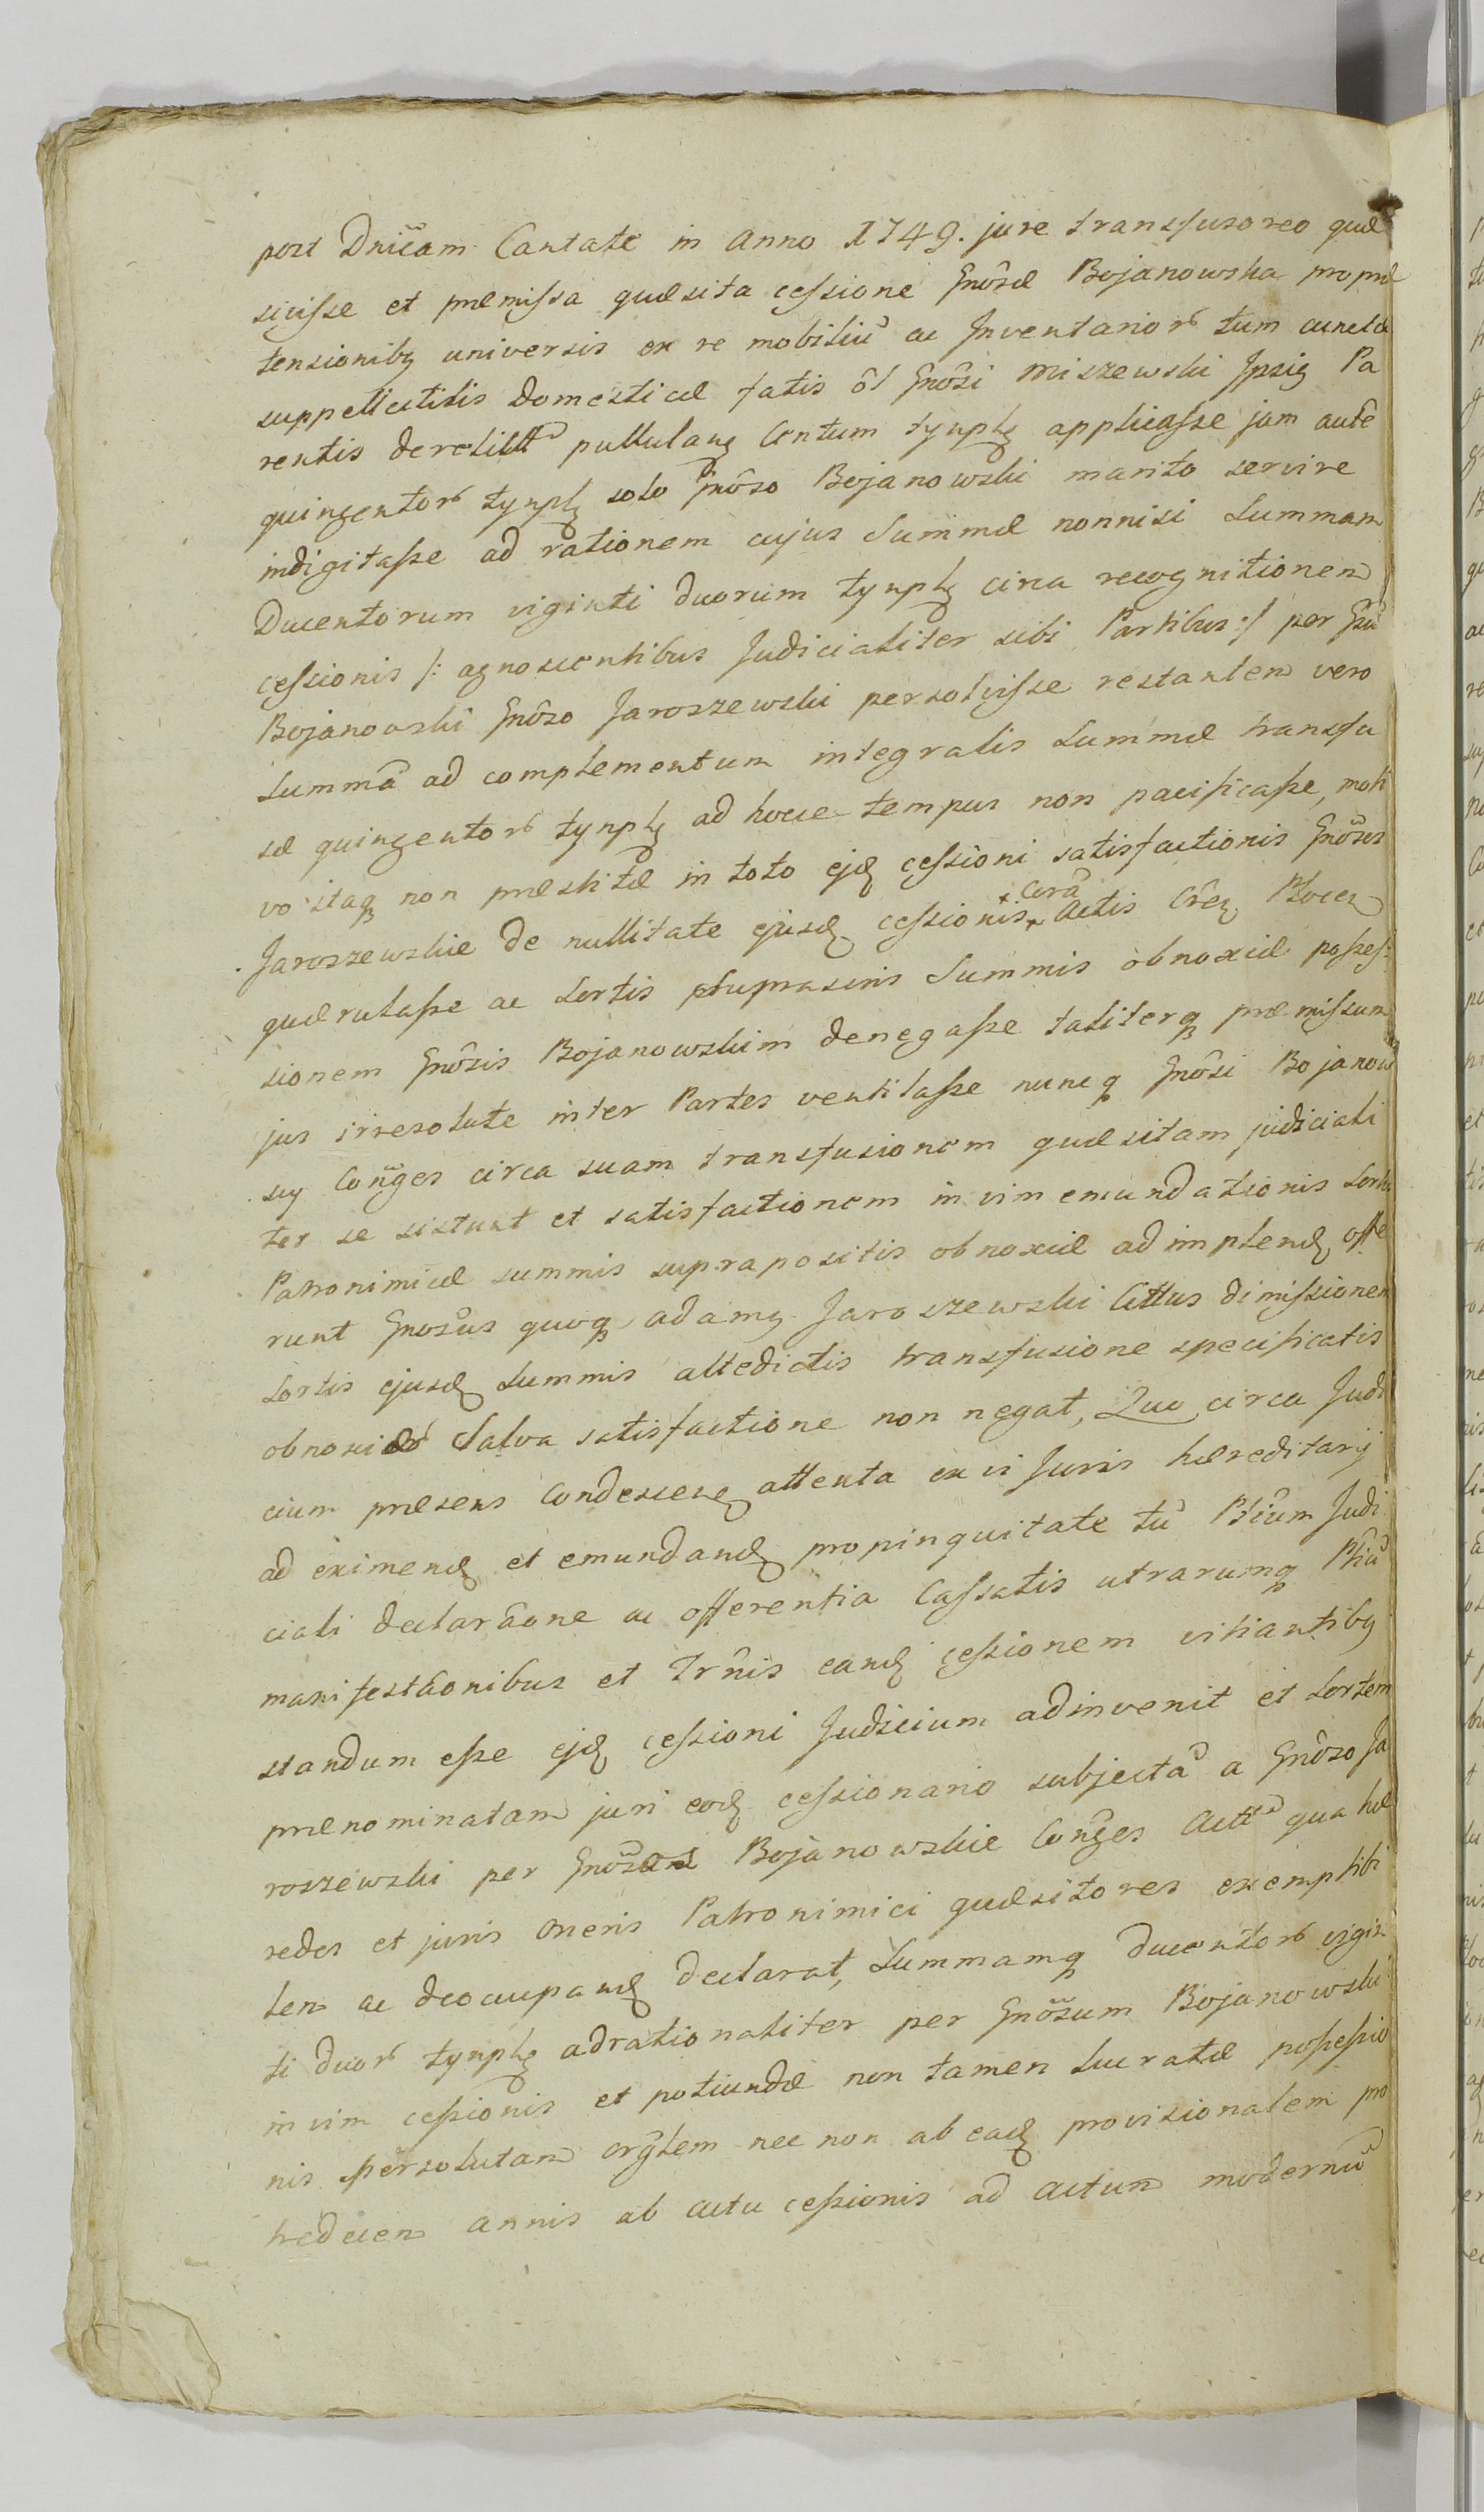 post Dnĩcam Cantate in Anno 1749. jure transfusoreo quæ
sivisse et præmissa quæsita cessione Gnôsæ Bojanowska pro præ
tensionibq universis ex re mobiliũ ac Inventarior tum cuncta
suppellectilis Domesticæ fatis ôl Gnôsi Miszewski Ipsiq Pa
rentis derelictũ pullulanq Centum tynphq applicasse jam autẽ
quingentor tynphq solo Gnôso Bojanowski marito servire
indigitasse ad rationem cujus Summæ nonnisi Summam
Ducentorum viginti duorum tynphq circa recognitionem
cessionis /: agnoscentibus Judicialiter sibi Partibus :/ per Gnũ
Bojanowski Gnôso Jaroszewski persolvisse restantem vero
Summã ad complementum integralis Summæ transfu
sæ quingentor tynphq ad hocce tempus non pacificasse, moti
vo itaq non præstitæ in toto ejq cessioni satisfactionis Gnôsos
Jaroszewskie de nullitate ejusq cessionis Corã Actis Crẽq Plocen
quærulasse ac Sortis suprascris Summis obnoxiæ posses-
sionem Gnôsis Bojanowskim denegasse taliterq præmissum
jus irresolute inter Partes ventilasse nuncq Gnôsi Bojanow
scy Cônges circa suam transfusionem quæsitam judiciali
ter se sistunt et satisfactionem in vim emundationis Sortis
Patronimicæ summis suprapositis obnoxiæ adimplendq offe
runt Gnosus quoq adamq Jaroszewski Cittus dimissionem
Sortis ejusdq Summis altedictis transfusione specificatis
obnoxiæ Salva satisfactione non negat, Quo circa Judi
cium præsens Condescenq attenta ex vi Juris hæreditarij
ad eximendq et emundandq propinquitate tũ Ptĩum Judi
ciali declarãone ac offerentia Cassatis utrarumq Ptiũ
manifestãonibus et Trĩnis eandq cessionem vitiantibq
standum esse ejq cessioni Judicium adinvenit et Sortem
prænominatam juri eodq cessionario subjectã a Gnôso Ja
roszewski per Gnôsos Bojanowskie Cônges Acttũ qua hæ
redes et juris oneris Patronimici quæsitores exemptibi
lem ac deoccupandq declarat, Summamq ducentor vigin
ti duor tynphq adrationaliter per Gnôsum Bojanowski
in vim cessionis et potiundæ non tamen lucratæ possessio
nis persolutam orĝlem nec non ab eadq provisionalem pro
tredecem annis ab actu cessionis ad actum modernũ